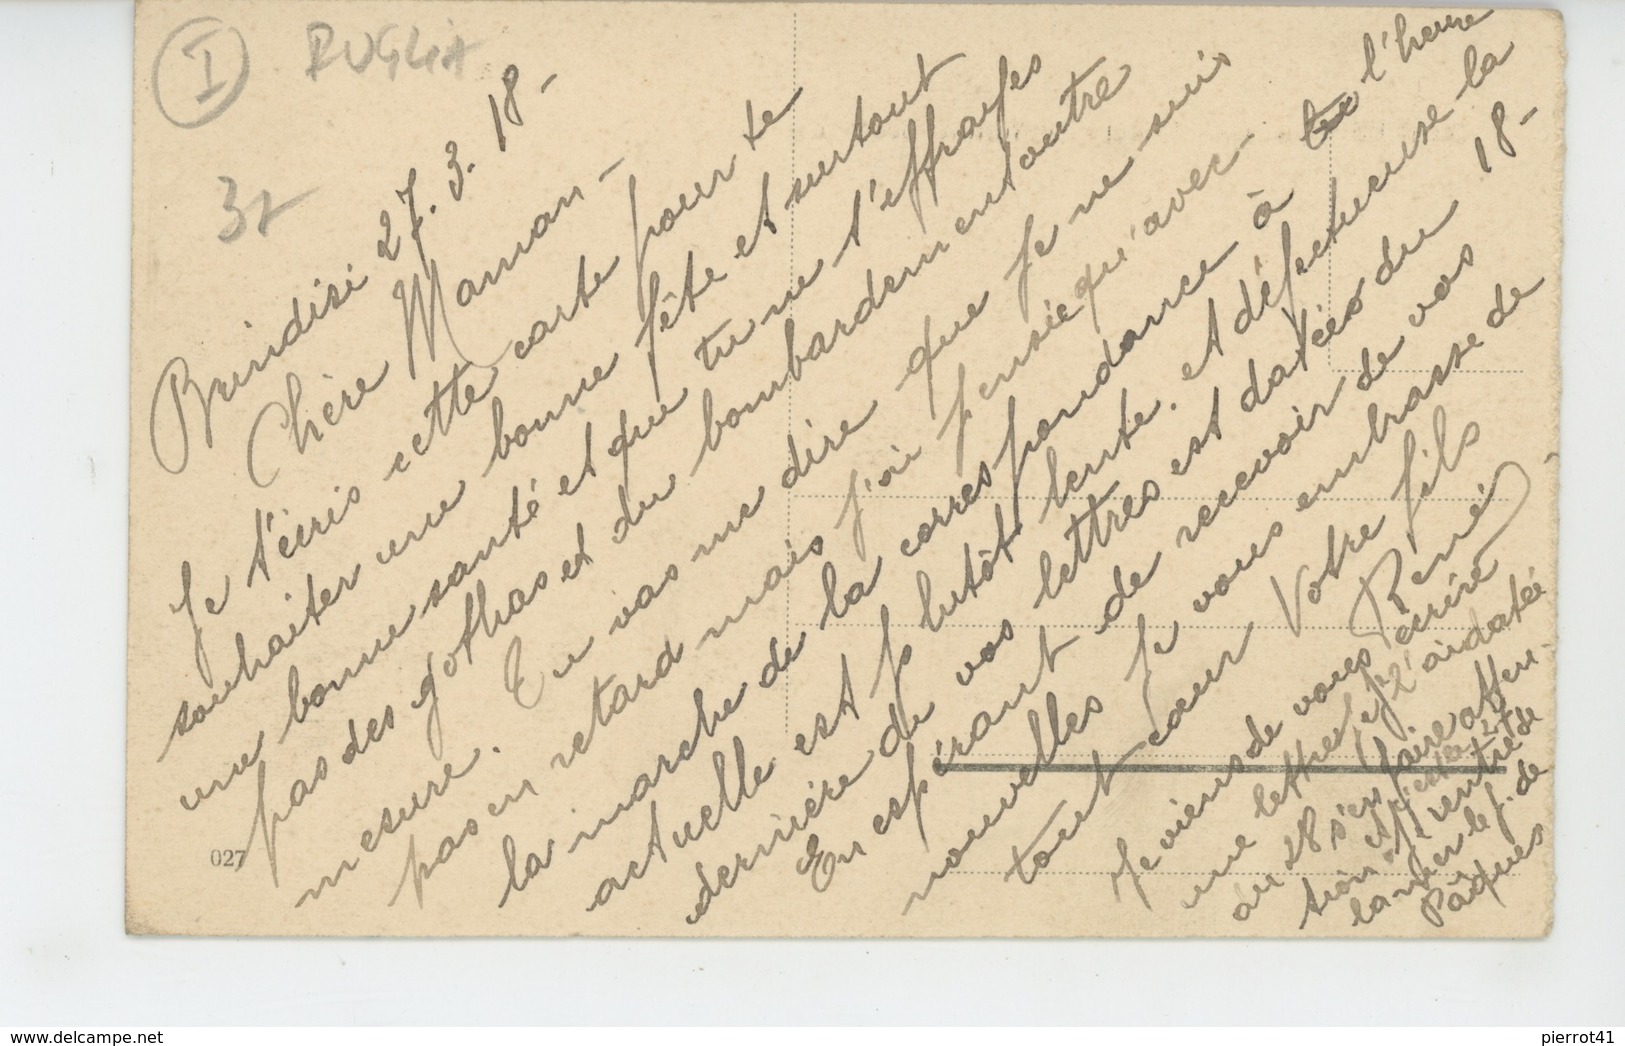 I PUGLIA
32
Brindisi 27.3.18-
Chère Maman-
Je t'écris cette carte pour te
souhaiter une bonne fête et surtout
une bonne santé et que tu ne t'effrayes
pas des gothas et du bombardement outre
mesure. Tu vas me dire que je ne suis
pas en retard mais j'ai pensée qu'avec
la marche de la correspondance à l'heure
actuelle est plutôt lente. et défectueuse-la
dernière de vos lettres est datées du 18-
En espérant de recevoir de vos
nouvelles Je vous embrasse de
tout cœur Votre fils
René
Je viens de vous écrire
une lettre je l'ai datée
du 28 s'en faire atten-
tion et c'est le 27
la mer le j. de
Pâques
027
www.delcampe.net
pierrot41